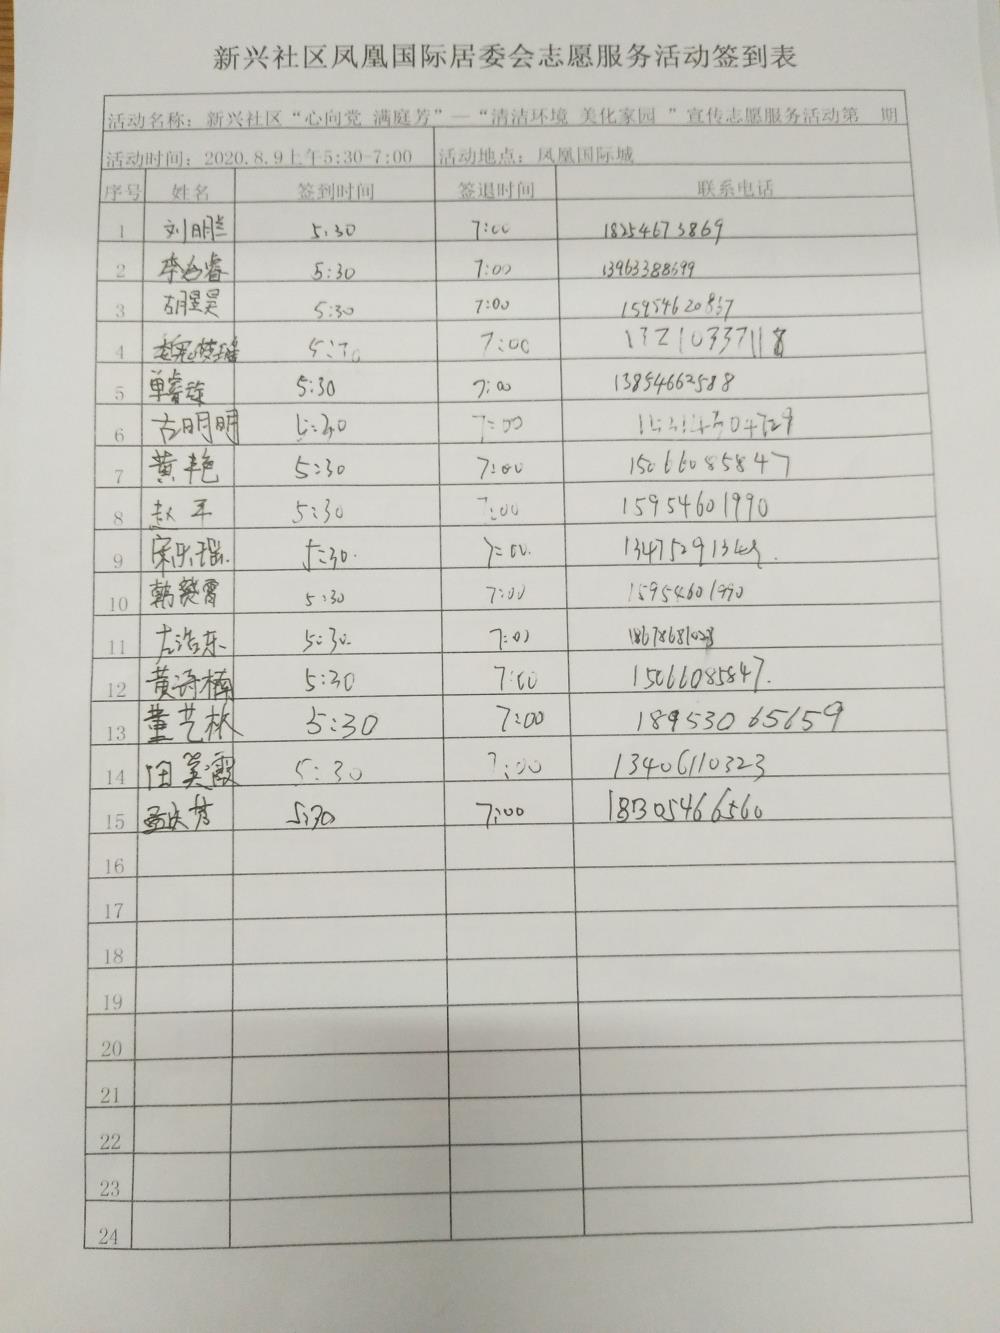 新兴社区凤凰国际居委会志愿服务活动签到表
活动名称：新兴社区“心向党 满庭芳”—“清洁环境 美化家园 ”宣传志愿服务活动第 期
活动时间：2020.8.9上午5:30-7:00 活动地点：凤凰国际城
序号 姓名 签到时间 签退时间 联系电话
1 刘朋兰 5:30 7:00 18254673869
2 5:30 7:00 13963388699
3 胡昱昊 5:30 7:00 15954620837
4 7:00 13210337118
5 单睿 5:30 7:00 13854662588
6 古明明 5:30 7:00
7 黄艳 5:30 7:00 15066085847
8 赵平 5:30 7:00 15954601990
9 宋乐瑶 5:30. 7:00.
10 韩赞霄 5:30 7:00 15954601990
11 左浩东 5:30. 7:00
12 黄诗楠 5:30 7:00 15066085847.
13 董艺林 5:30 7:00 18953065659
14 田美霞 5:30 7:00 13406110323
15 5:30 7:00 18305466560
16
17
18
19
20
21
22
23
24